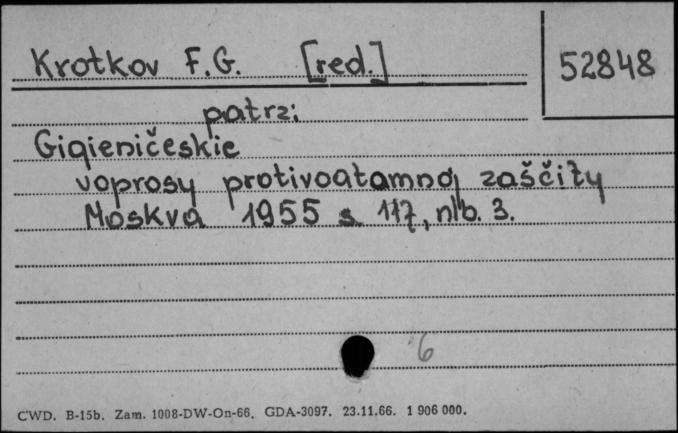 Krotkov F.G. [red.]
52848
patrz:
Gigieničeskie
voprosy protivoatamnoj zaščity
Moskva 1955 s. 117, nlb. 3.
6
CWD. B-15b. Zam. 1008-DW-On-66. GDA-3097. 23.11.66. 1 906 000.